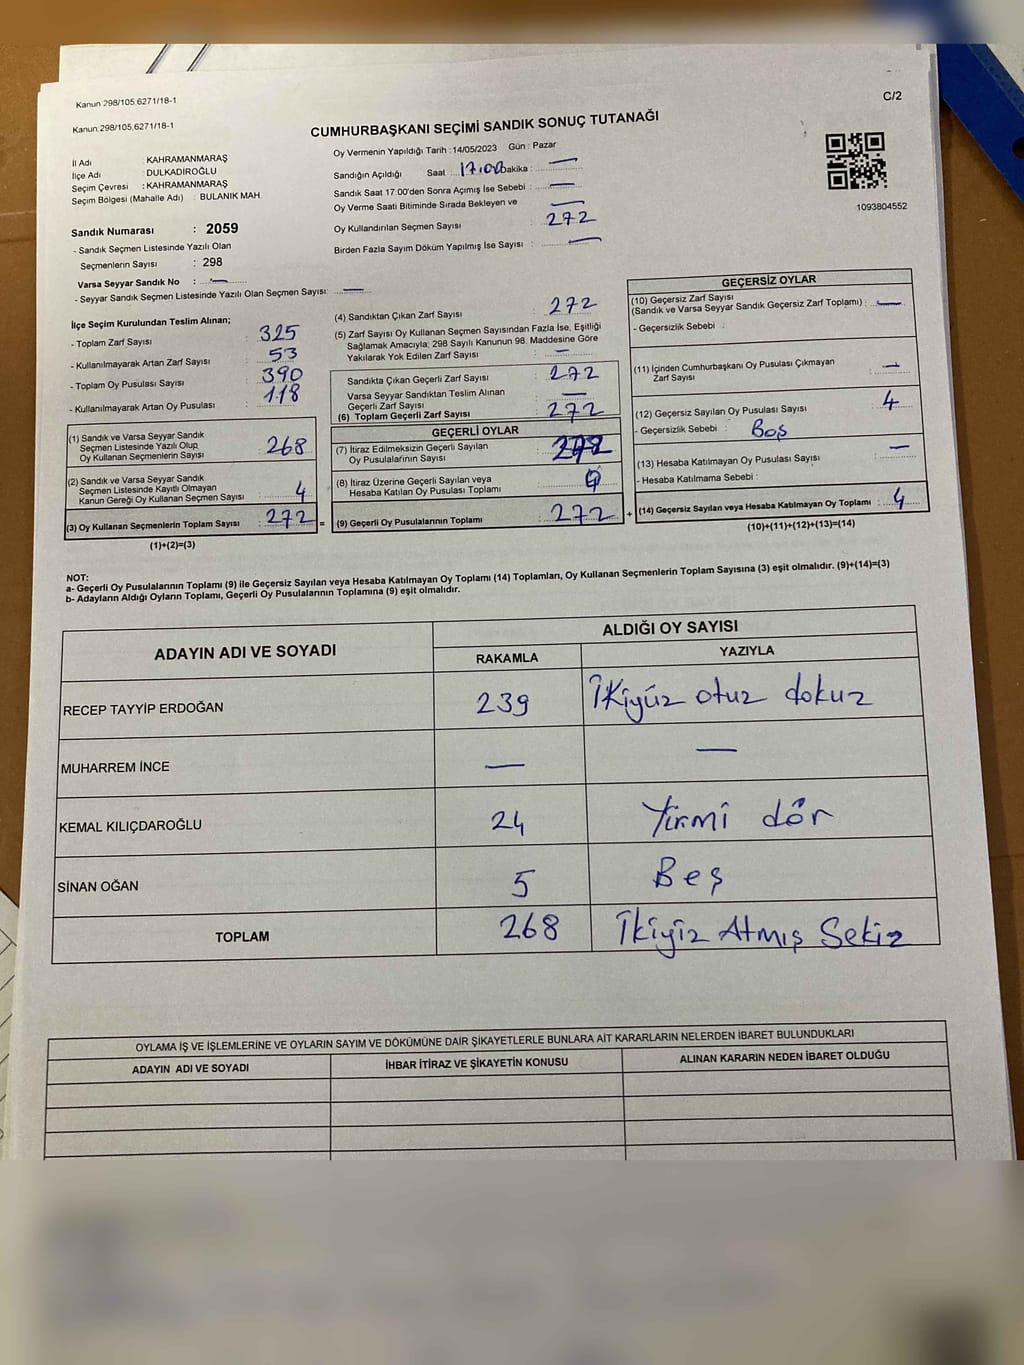 Kanun 298/105.6271/18-1
C/2
Kanun.298/105.6271/18-1
CUMHURBAŞKANI SEÇİMİ SANDIK SONUÇ TUTANAĞI
İl Adı : KAHRAMANMARAŞ
İlçe Adı : DULKADİROĞLU
Seçim Çevresi : KAHRAMANMARAŞ
Seçim Bölgesi (Mahalle Adı) : BULANIK MAH.
Oy Vermenin Yapıldığı Tarih :14/05/2023 Gün : Pazar
Sandığın Açıldığı Saat 17.00 Dakika : —
Sandık Saat 17:00'den Sonra Açımış İse Sebebi : —
Oy Verme Saati Bitiminde Sırada Bekleyen ve —
Oy Kullandırılan Seçmen Sayısı : 272
Birden Fazla Sayım Döküm Yapılmış İse Sayısı : —
1093804552
Sandık Numarası : 2059
- Sandık Seçmen Listesinde Yazılı Olan
Seçmenlerin Sayısı : 298
Varsa Seyyar Sandık No : —
- Seyyar Sandık Seçmen Listesinde Yazılı Olan Seçmen Sayısı: —
İlçe Seçim Kurulundan Teslim Alınan;
- Toplam Zarf Sayısı : 325
- Kullanılmayarak Artan Zarf Sayısı : 53
- Toplam Oy Pusulası Sayısı : 390
- Kullanılmayarak Artan Oy Pusulası : 118
(1) Sandık ve Varsa Seyyar Sandık
Seçmen Listesinde Yazılı Olup
Oy Kullanan Seçmenlerin Sayısı : 268
(2) Sandık ve Varsa Seyyar Sandık
Seçmen Listesinde Kayıtlı Olmayan
Kanun Gereği Oy Kullanan Seçmen Sayısı : 4
(3) Oy Kullanan Seçmenlerin Toplam Sayısı : 272 =
(1)+(2)=(3)
(4) Sandıktan Çıkan Zarf Sayısı : 272
(5) Zarf Sayısı Oy Kullanan Seçmen Sayısından Fazla İse, Eşitliği
Sağlamak Amacıyla; 298 Sayılı Kanunun 98. Maddesine Göre
Yakılarak Yok Edilen Zarf Sayısı : —
Sandıkta Çıkan Geçerli Zarf Sayısı : 272
Varsa Seyyar Sandıktan Teslim Alınan
Geçerli Zarf Sayısı : —
(6) Toplam Geçerli Zarf Sayısı : 272
GEÇERLİ OYLAR
(7) İtiraz Edilmeksizin Geçerli Sayılan
Oy Pusulalarının Sayısı :
(8) İtiraz Üzerine Geçerli Sayılan veya
Hesaba Katılan Oy Pusulası Toplamı :
(9) Geçerli Oy Pusulalarının Toplamı : 272 +
GEÇERSİZ OYLAR
(10) Geçersiz Zarf Sayısı
(Sandık ve Varsa Seyyar Sandık Geçersiz Zarf Toplamı) : —
- Geçersizlik Sebebi :
(11) İçinden Cumhurbaşkanı Oy Pusulası Çıkmayan
Zarf Sayısı : —
(12) Geçersiz Sayılan Oy Pusulası Sayısı : 4
- Geçersizlik Sebebi : Boş
(13) Hesaba Katılmayan Oy Pusulası Sayısı : —
- Hesaba Katılmama Sebebi :
(14) Geçersiz Sayılan veya Hesaba Katılmayan Oy Toplamı : 4
(10)+(11)+(12)+(13)=(14)
NOT:
a- Geçerli Oy Pusulalarının Toplamı (9) ile Geçersiz Sayılan veya Hesaba Katılmayan Oy Toplamı (14) Toplamları, Oy Kullanan Seçmenlerin Toplam Sayısına (3) eşit olmalıdır. (9)+(14)=(3)
b- Adayların Aldığı Oyların Toplamı, Geçerli Oy Pusulalarının Toplamına (9) eşit olmalıdır.
ADAYIN ADI VE SOYADI
ALDIĞI OY SAYISI
RAKAMLA YAZIYLA
RECEP TAYYİP ERDOĞAN 239 İkiyüz otuz dokuz
MUHARREM İNCE — —
KEMAL KILIÇDAROĞLU 24 Yirmi dör
SİNAN OĞAN 5 Beş
TOPLAM 268 İkiyiz Atmış Sekiz
OYLAMA İŞ VE İŞLEMLERİNE VE OYLARIN SAYIM VE DÖKÜMÜNE DAİR ŞİKAYETLERLE BUNLARA AİT KARARLARIN NELERDEN İBARET BULUNDUKLARI
ADAYIN ADI VE SOYADI İHBAR İTİRAZ VE ŞİKAYETİN KONUSU ALINAN KARARIN NEDEN İBARET OLDUĞU